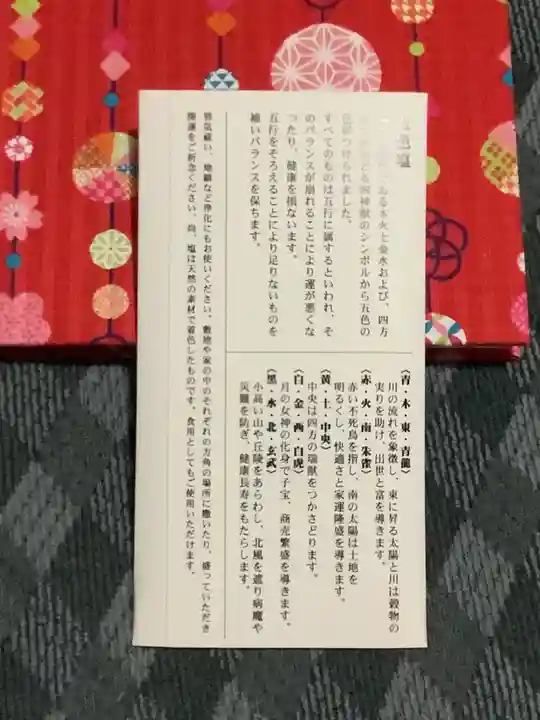 ある木火土金水および、四方
四神獣のシンボルから五色の
つけられました。
すべてのものは五行に属するといわれ、そ
のバランスが崩れることにより運が悪くな
ったり、健康を損ないます。
五行をそろえることにより足りないものを
補いバランスを保ちます。
〈青・木・東・青龍〉
川の流れを象徴し、東に昇る太陽と川は穀物の
実りを助け、出世と富を導きます。
〈赤・火・南・朱雀〉
赤い不死鳥を指し、南の太陽は土地を
明るくし、快適さと家運隆盛を導きます。
〈黄・土・中央〉
中央は四方の瑞獣をつかさどります。
〈白・金・西・白虎〉
月の女神の化身で子宝、商売繁盛を導きます。
〈黒・水・北・玄武〉
小高い山や丘陵をあらわし、北風を遮り病魔や
災難を防ぎ、健康長寿をもたらします。
邪気祓い、地鎮など浄化にもお使いください。敷地や家の中のそれぞれの方角の場所に撒いたり、盛っていただき
開運をご祈念ください。尚、塩は天然の素材で着色したものです。食用としてもご使用いただけます。